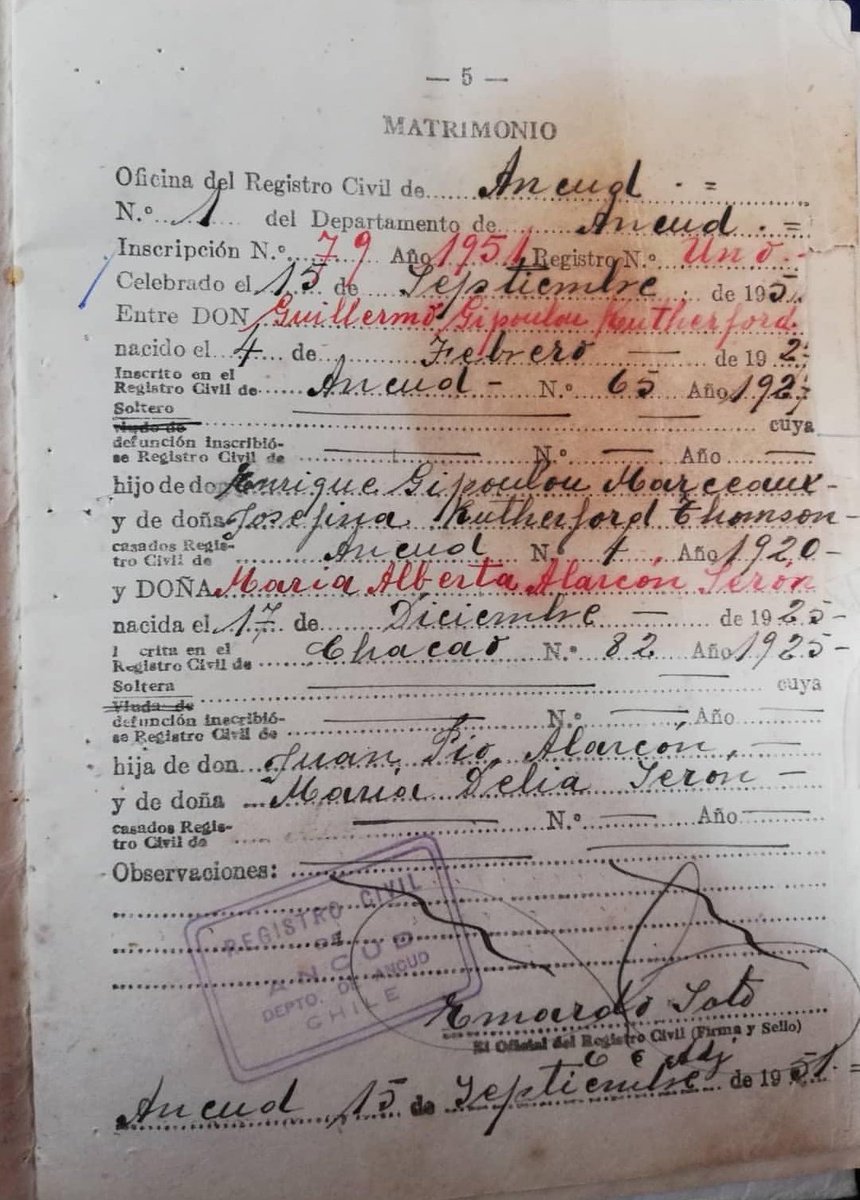 — 5 —
MATRIMONIO
Oficina del Registro Civil de Ancud . =
N.º 1 del Departamento de Ancud . =
Inscripción N.º 79 Año 1951 Registro N.º Uno.-
Celebrado el 15 de Septiembre de 195
Entre DON Guillermo Gipoulou Rutherford.
nacido el 4 de Febrero — de 192
Inscrito en el
Registro Civil de Ancud - N.º 65 Año 192
Soltero
viudo de cuya
defunción inscribió-
se Registro Civil de — N.º — Año —
hijo de don Enrique Gipoulou Marceaux -
y de doña Josefina Rutherford Thomson -
casados Regis-
tro Civil de Ancud N.º 4 Año 1920 -
y DOÑA Maria Alberta Alarcón Serón
nacida el 17 de Diciembre — de 1925 -
crita en el
Registro Civil de Chacao N.º 82 Año 1925 -
Soltera
Viuda de cuya
defunción inscribió-
se Registro Civil de — N.º — Año —
hija de don Juan Pío Alarcón, —
y de doña María Delia Serón -
casados Regis-
tro Civil de — N.º — Año —
Observaciones:
REGISTRO CIVIL
DE
ANCUD
DEPTO. DE ANCUD
CHILE
Soto
El Oficial del Registro Civil (Firma y Sello)
Adj.
Ancud 15 de Septiembre de 1951 =